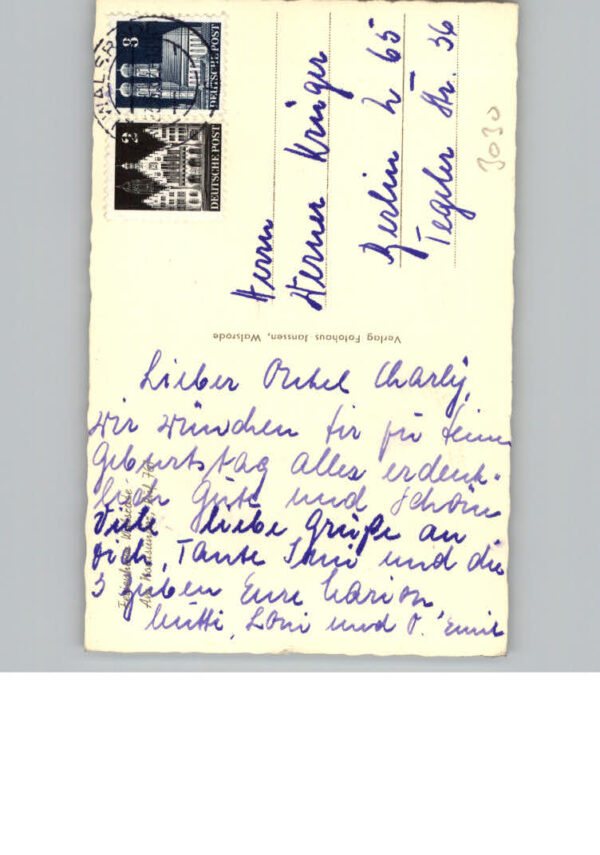 WALSRODE
8
DEUTSCHE POST
2
DEUTSCHE POST
Herrn
Werner Krüger
Berlin N 65
Tegeler Str. 36
3030
Verlag Fotohaus Janssen, Walsrode
Lieber Onkel Charly,
Wir wünchen Dir zu Deinem
Geburtstag alles erdenk-
lich Gute und Schöne
Viele liebe Grüße an
Dich, Tante und die
3 Eure Marion
Mutti, Loni und O. Emil